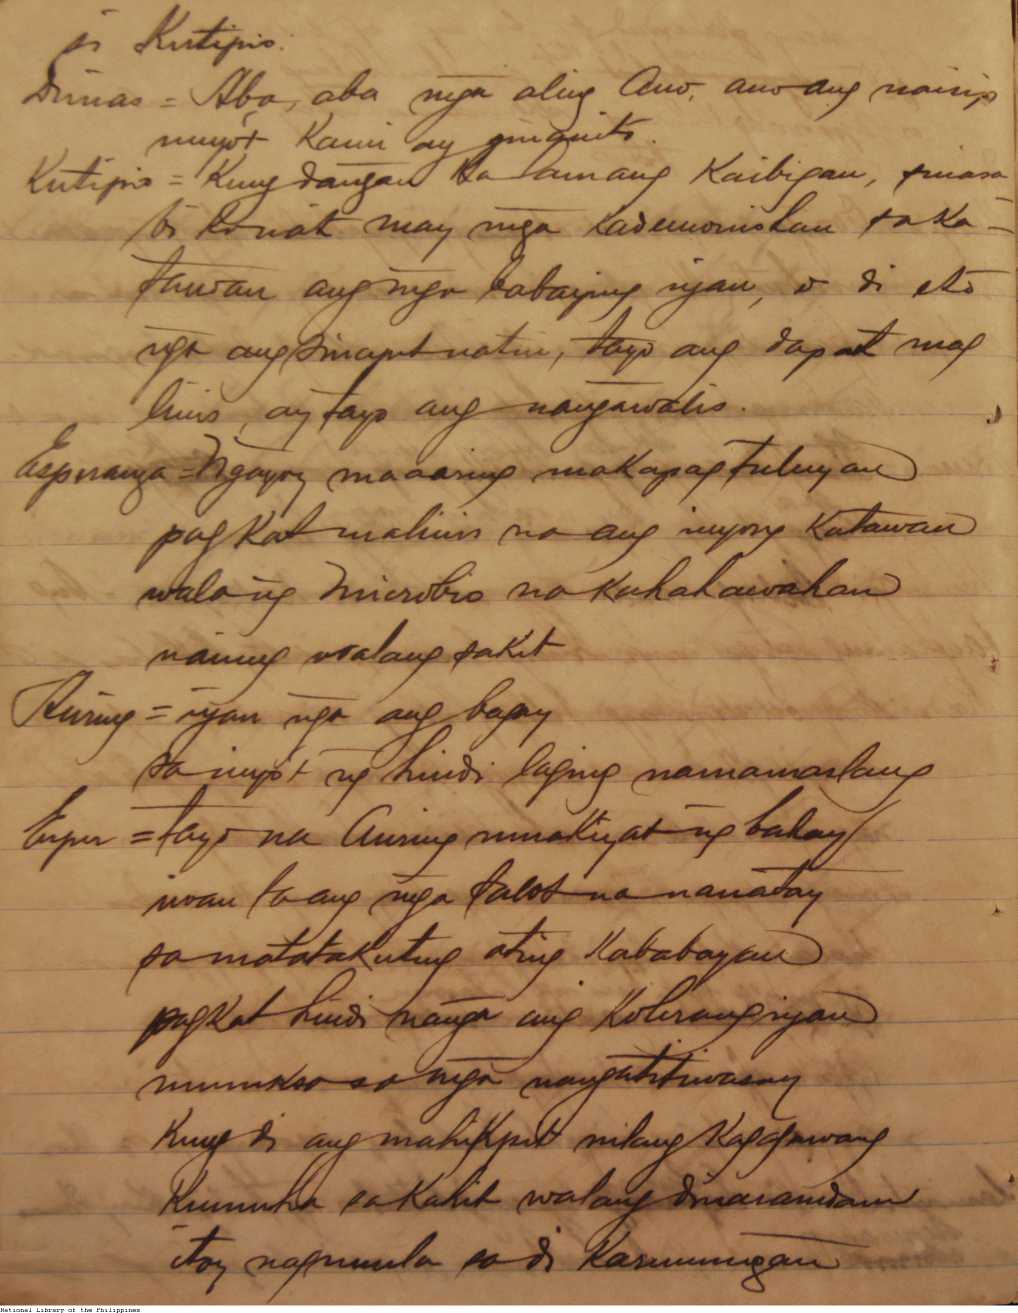 si Kutipio.
Dimas = Aba, aba mga aling Ano, ano ang naisip
ninyo't kami ay ginanito.
Kutipio = Kung dangan ka lamang kaibigan, sinasa
bi ko nat may mga kademonishan sa ka-
tawan ang mga babaying iyan, o di eto
nga ang sinapit natin, tayo ang dapat mag
linis, ay tayo ang nangawalis.
Esperanza = Ngayoy maaaring makapagtuluyan
pagkat malinis na ang inyong katawan
walang microbio na kahahawahan
naming walang sakit
Auring = iyan nga ang bagay
sa inyo't ng hindi laging namamaslang
Esper = tayo na Auring mnakiyat ng bahay
iwan ta ang mga salot na nanatay
sa matatakuting ating kababayan
pagkat hindi nanga ang kolerang iyan
mumukso sa mga nangatitiwasay
kung di ang mahigpit nilang kagagawang
kumuha sakahit walang dinaramdam
itoy nagmula sa di karunungan
National Library of the Philippines